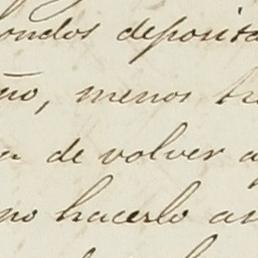 fondos deposita
ño, menos tr
a de volver a
no hacerlo an